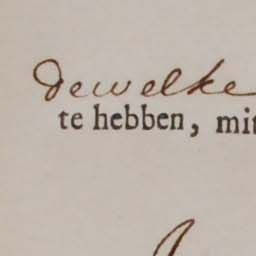 dewelke
te hebben, mit